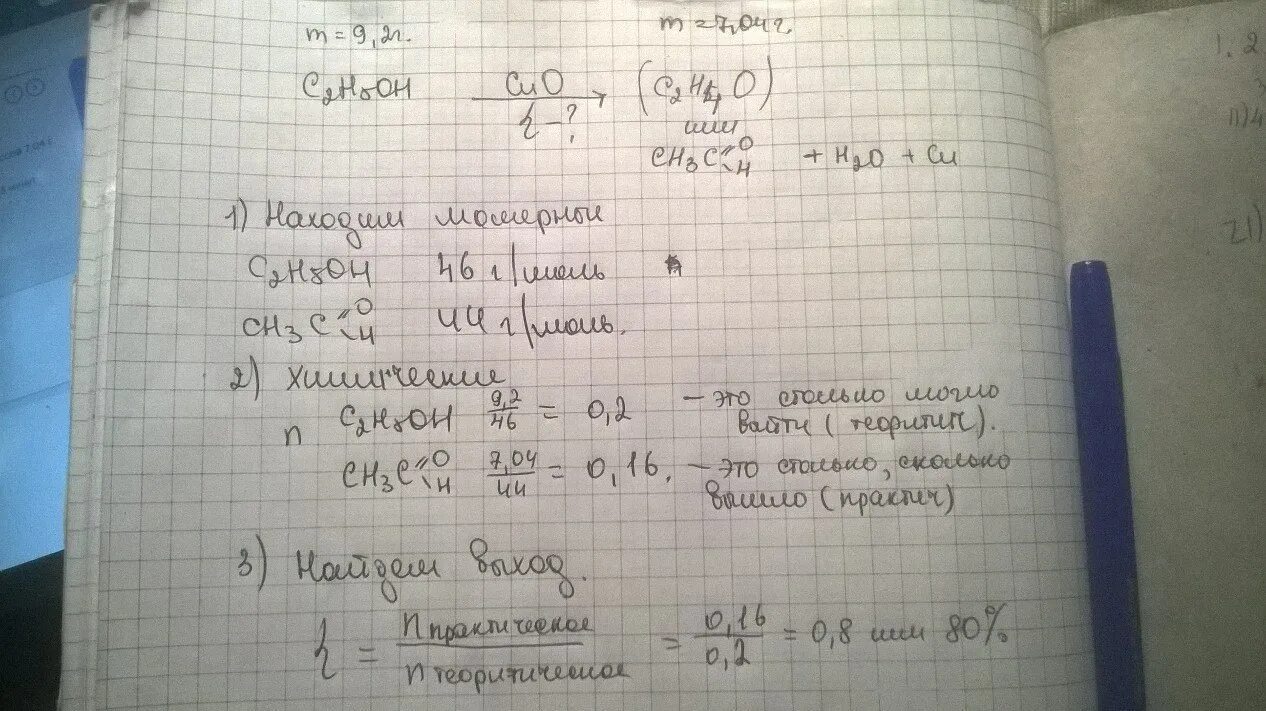 m = 9,2г. m = 7,04г.
C2H5OH CuO → (C2H4O)
η - ?
или
CH3C=O-H + H2O + Cu
1) Находим молярные
C2H5OH 46 г/моль
CH3C=O-H 44 г/моль.
2) Химические
n C2H5OH 9,2/46 = 0,2 - это столько могло
выйти (теоритич).
CH3C=O-H 7,04/44 = 0,16. - это столько, сколько
вышло (практич)
3) Найдем выход.
η = nпрактическое/nтеоритическое = 0,16/0,2 = 0,8 или 80%
1. 2
21)